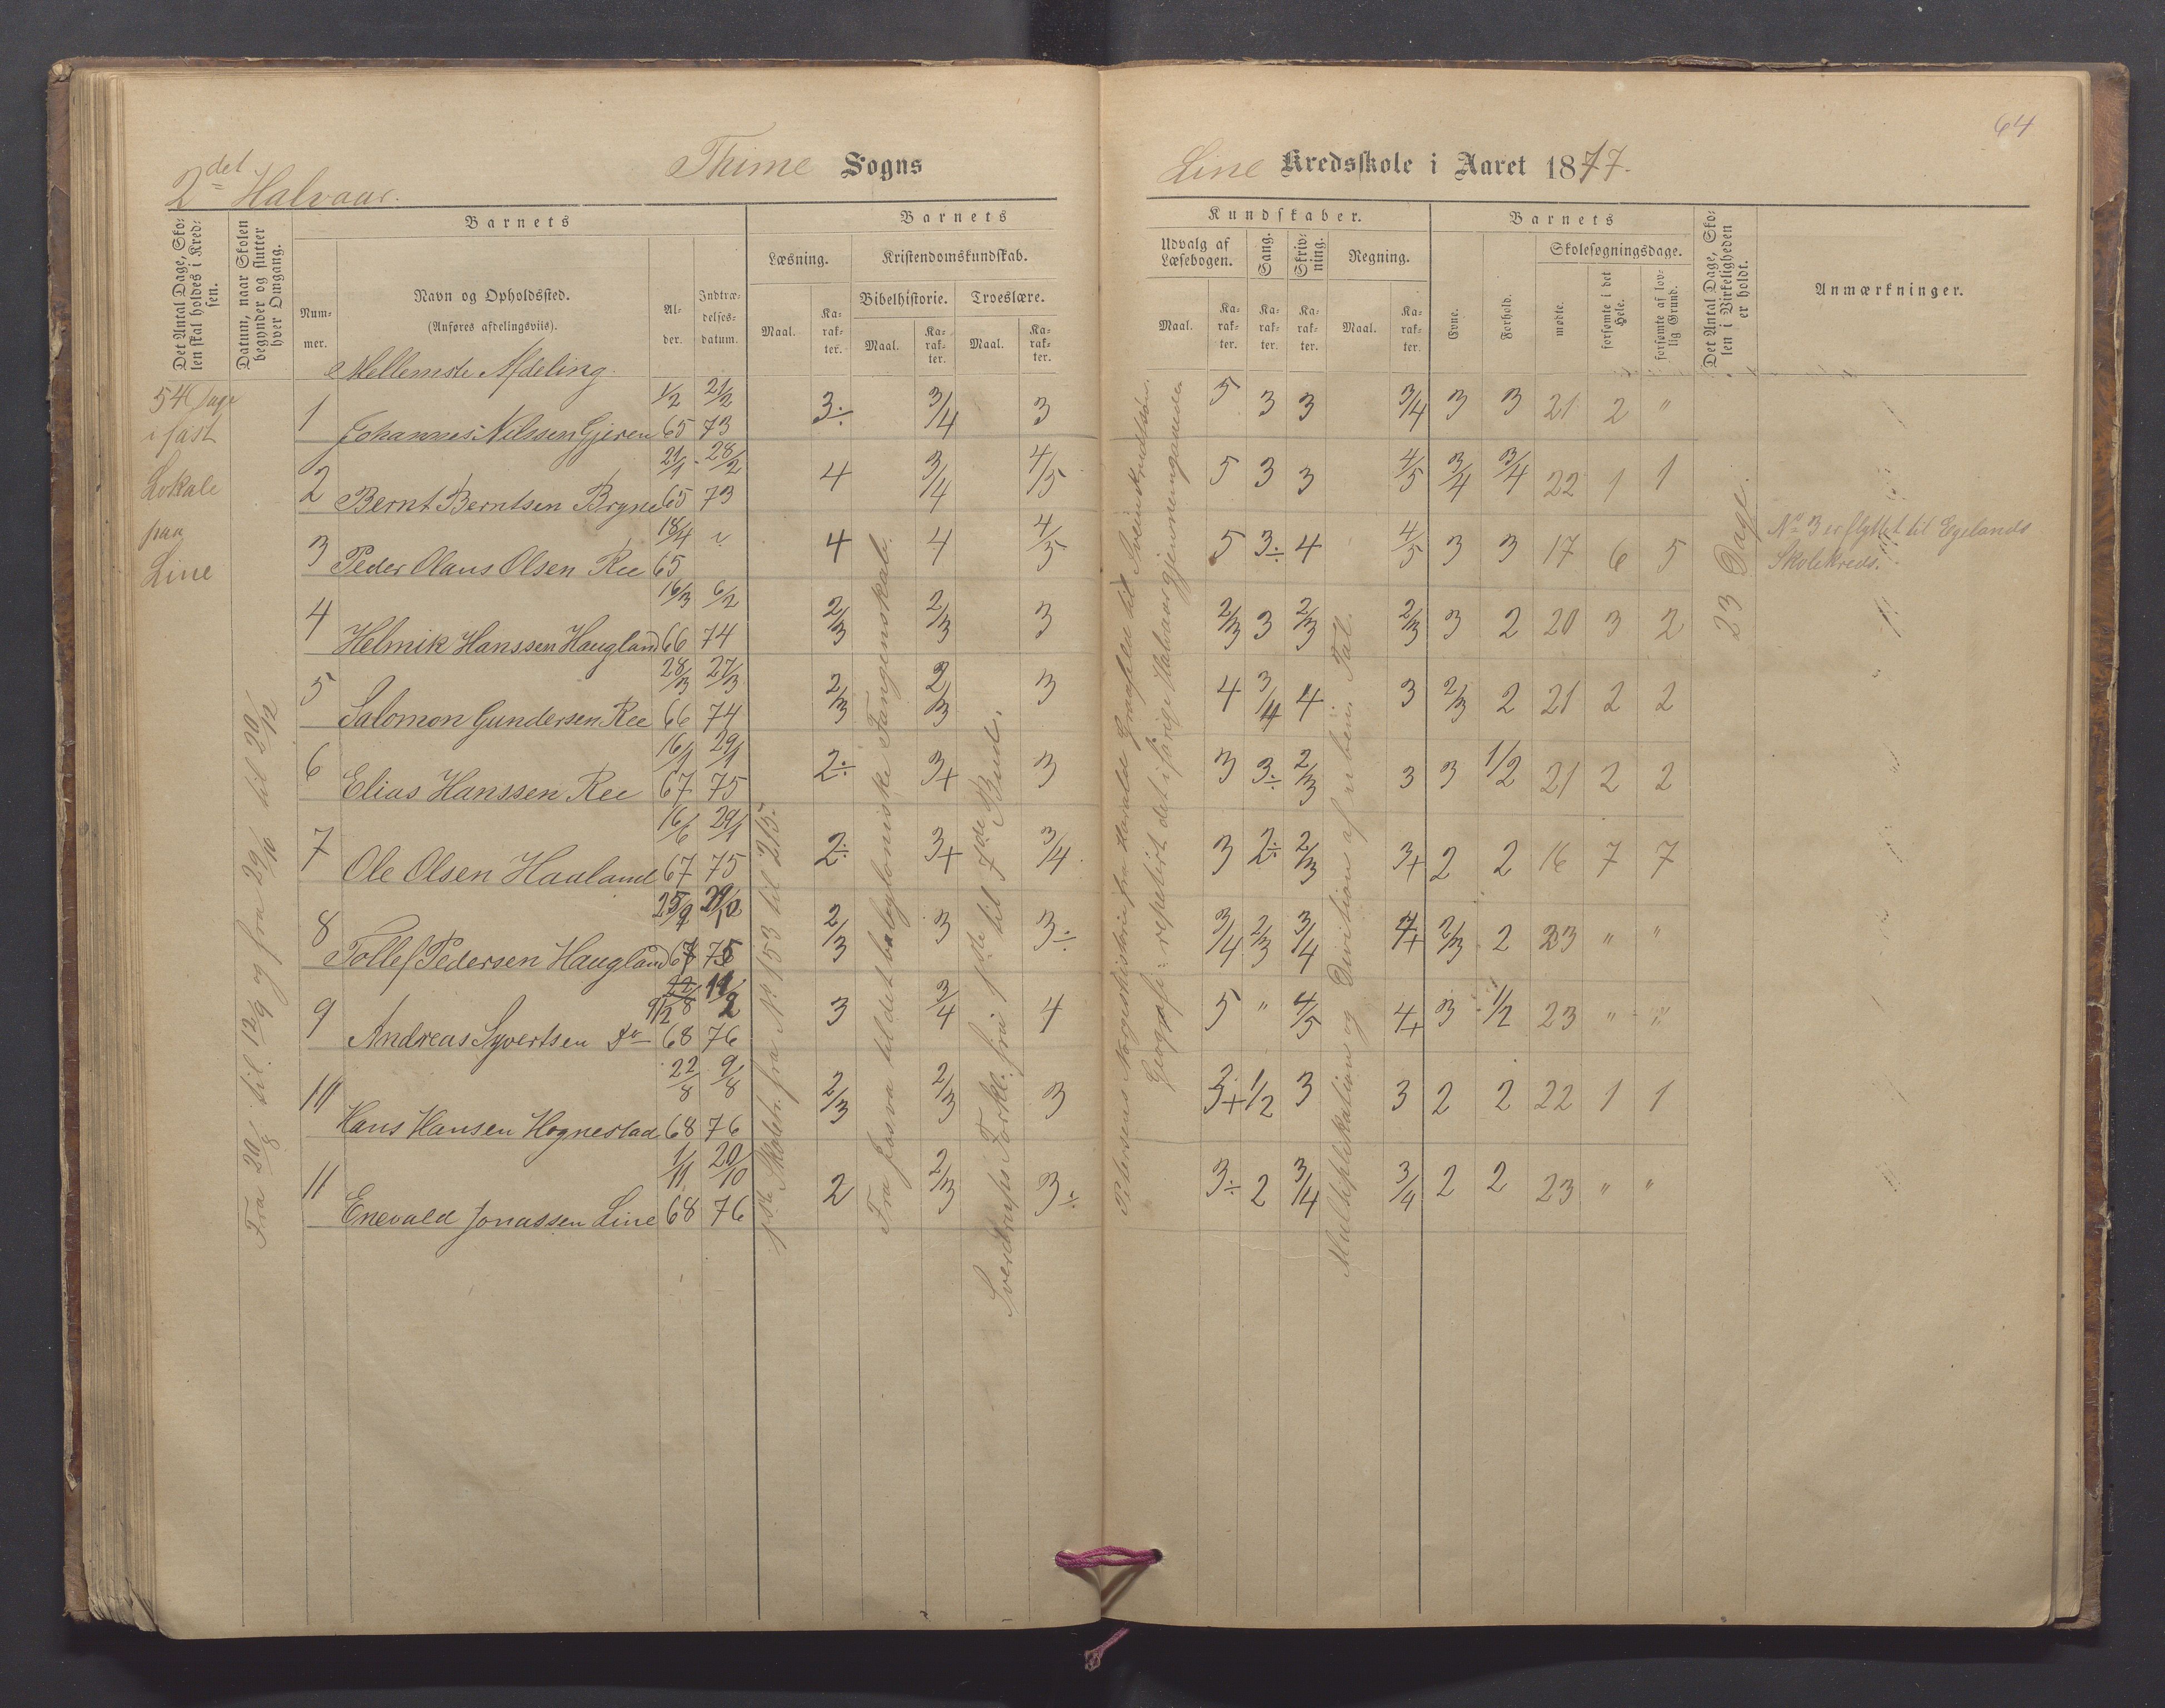 64
2det Halvaar.
Thime Sogns
Line Kredsskole i Aaret 1877.
Det Antal Dage, Sko-
len skal holdes i Kred-
sen.
Datum, naar Skolen
begynder og slutter
hver Omgang.
Barnets
Num-
mer.
Navn og Opholdssted.
(Anføres afdelingsviis).
Al-
der.
Indtræ-
delses-
datum.
Barnets
Læsning.
Maal.
Ka-
rak-
ter.
Kristendomskundskab.
Bibelhistorie.
Maal.
Ka-
rak-
ter.
Troeslære.
Maal.
Ka-
rak-
ter.
Kundskaber.
Udvalg af
Læsebogen.
Maal.
Ka-
rak-
ter.
Sang.
Ka-
rak-
ter.
Skriv-
ning.
Ka-
rak-
ter.
Regning.
Maal.
Ka-
rak-
ter.
Barnets
Evne.
Forhold.
Skolesøgningsdage.
mødte.
forsømte i det
Hele.
forsømte af lov-
lig Grund.
Det Antal Dage, Sko-
len i Virkeligheden
er holdt.
Anmærkninger.
Mellemste Afdeling.
54 Dage
i fast
Lokale
paa
Line
Fra 20/8 til 12/9 og fra 29/10 til 20/12
1 Johannes Nilssen Gjeren 1/2 65 21/2 73 3÷ 3/4 3 5 3 3 3/4 3 3 21 2 "
2 Bernt Berntsen Bryne 21/1 65 28/2 73 4 3/4 4/5 5 3 3 4/5 3/4 3/4 22 1 1
3 Peder Olaus Olsen Ree 18/4 65 4 4 4/5 5 3÷ 4 4/5 3 3 17 6 5
4 Helmik Hanssen Haugland 16/3 66 6/2 74 2/3 2/3 3 2/3 3 2/3 2/3 3 2 20 3 2
5 Salomon Gundersen Ree 28/3 66 27/3 74 2/3 2/3 3 4 3/4 4 3 2/3 2 21 2 2
6 Elias Hanssen Ree 16/1 67 29/1 75 2÷ 3+ 3 3 3÷ 2/3 3 3 1/2 21 2 2
7 Ole Olsen Haaland 16/6 67 29/1 75 2÷ 3+ 3/4 3 2÷ 2/3 3+ 2 2 16 7 7
8 Tollef Pedersen Haugland 25/9 67 29/10 75 2/3 3 3÷ 3/4 2/3 3/4 4+ 2/3 2 23 " "
9 Andreas Syvertsen Do 9/12 68 11/2 76 3 3/4 4 5 " 4/5 4+ 3 1/2 23 " "
10 Hans Hansen Hognestad 22/8 68 9/8 76 2/3 2/3 3 3+ 1/2 3 3 2 2 22 1 1
11 Enevald Jonassen Line 1/11 68 20/10 76 2 2/3 3÷ 3÷ 2 3/4 3/4 2 2 23 " "
1ste Skolebr. fra No 153 til 215.
Fra Josva til det babyloniske Fangenskab.
Sverdrups Forkl. fra 1ste til 7de Bud.
Petersens Norgeshistorie fra Harald Graafeld til
Geografi: repetert det i forrige Halvaar gjennemgaaede
Multiplikation og Division af ubenn. Tal.
23 Dage.
No 3 er flyttet til Egelands
Skolekreds.